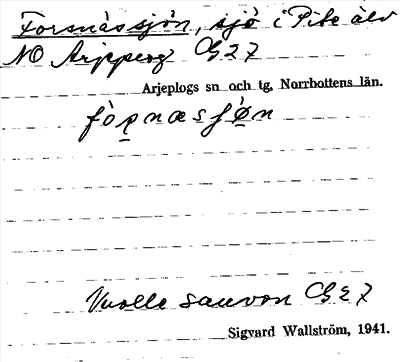 Forsnässjön, sjö i Pite älv
NO Arjeplog G 27
Arjeplogs sn och tg, Norrbottens län.
fòṛnæsʃø̣n
Vuolle sauvon G 27
Sigvard Wallström, 1941.